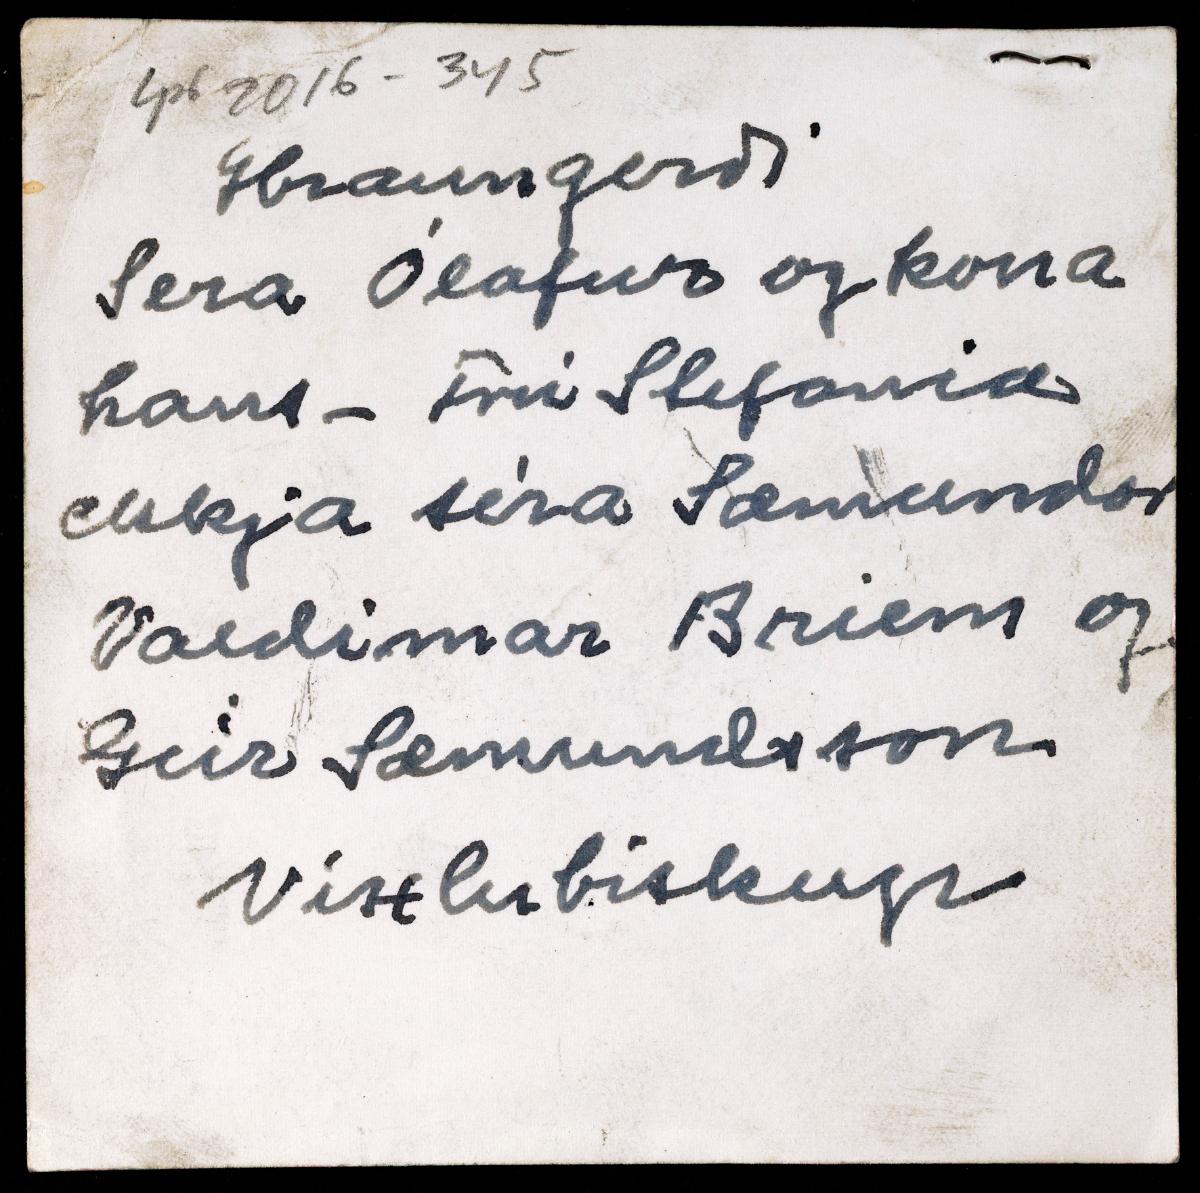 Lpb 2016-345
Hraungerði
Séra Ólafur og kona
hans - Frú Stefania
ekkja séra Sæmundar
Valdimar Briem og
Geir Sæmundsson
Víxlubiskupr